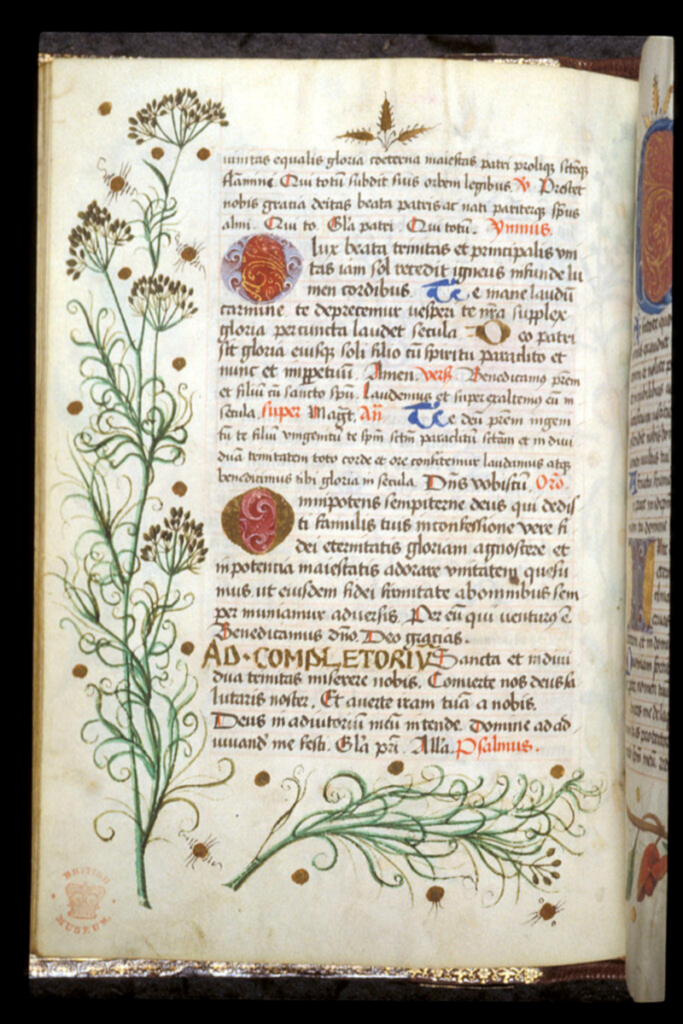 unitas equalis gloria coeterna maiestas patri prolique sctoq
flamini. Qui totu subdit suis orbem legibus. V Prestet
nobis gratia deitas beata patris ac nati pariterq spus
almi. Qui to. Gla patri. Qui totu. Ymnus.
O lux beata trinitas et principalis vni
tas iam sol recedit igneus infunde lu
men cordibus. Te mane laudu
carmine te deprecemur vesperi te nra supplex
gloria per cuncta laudet secula. Deo patri
sit gloria eiusq soli filio cu spiritu paraclito et
nunc et inppetuu. Amen. vers Benedicamus prem
et filiu cu sancto spu. Laudemus et superexaltemus eu in
secula. super Magt. An Te deu prem ingeni
tu te filiu vnigenitu te spm sctm paraclitu sctam et indiui
dua trinitatem toto corde et ore confitemur laudamus atq
benedicimus tibi gloria in secula. Dns vobiscu. Oro.
Omnipotens sempiterne deus qui dedis
ti famulis tuis in confessione vere fi
dei eternitatis gloriam agnoscere et
in potentia maiestatis adorare vnitatem quesu
mus ut eiusdem fidei firmitate ab omnibus sem
per muniamur aduersis. Per eu qui venturus e.
Benedicamus dno. Deo gracias.
AD COMPLETORIV Sancta et indiui
dua trinitas miserere nobis. Conuerte nos deus sa
lutaris noster. Et auerte iram tua a nobis.
Deus in adiutoriu meu intende. Domine ad ad
iuuand me festi. Gla pri. Alla. Psalmus.
BRITISH
MUSEUM